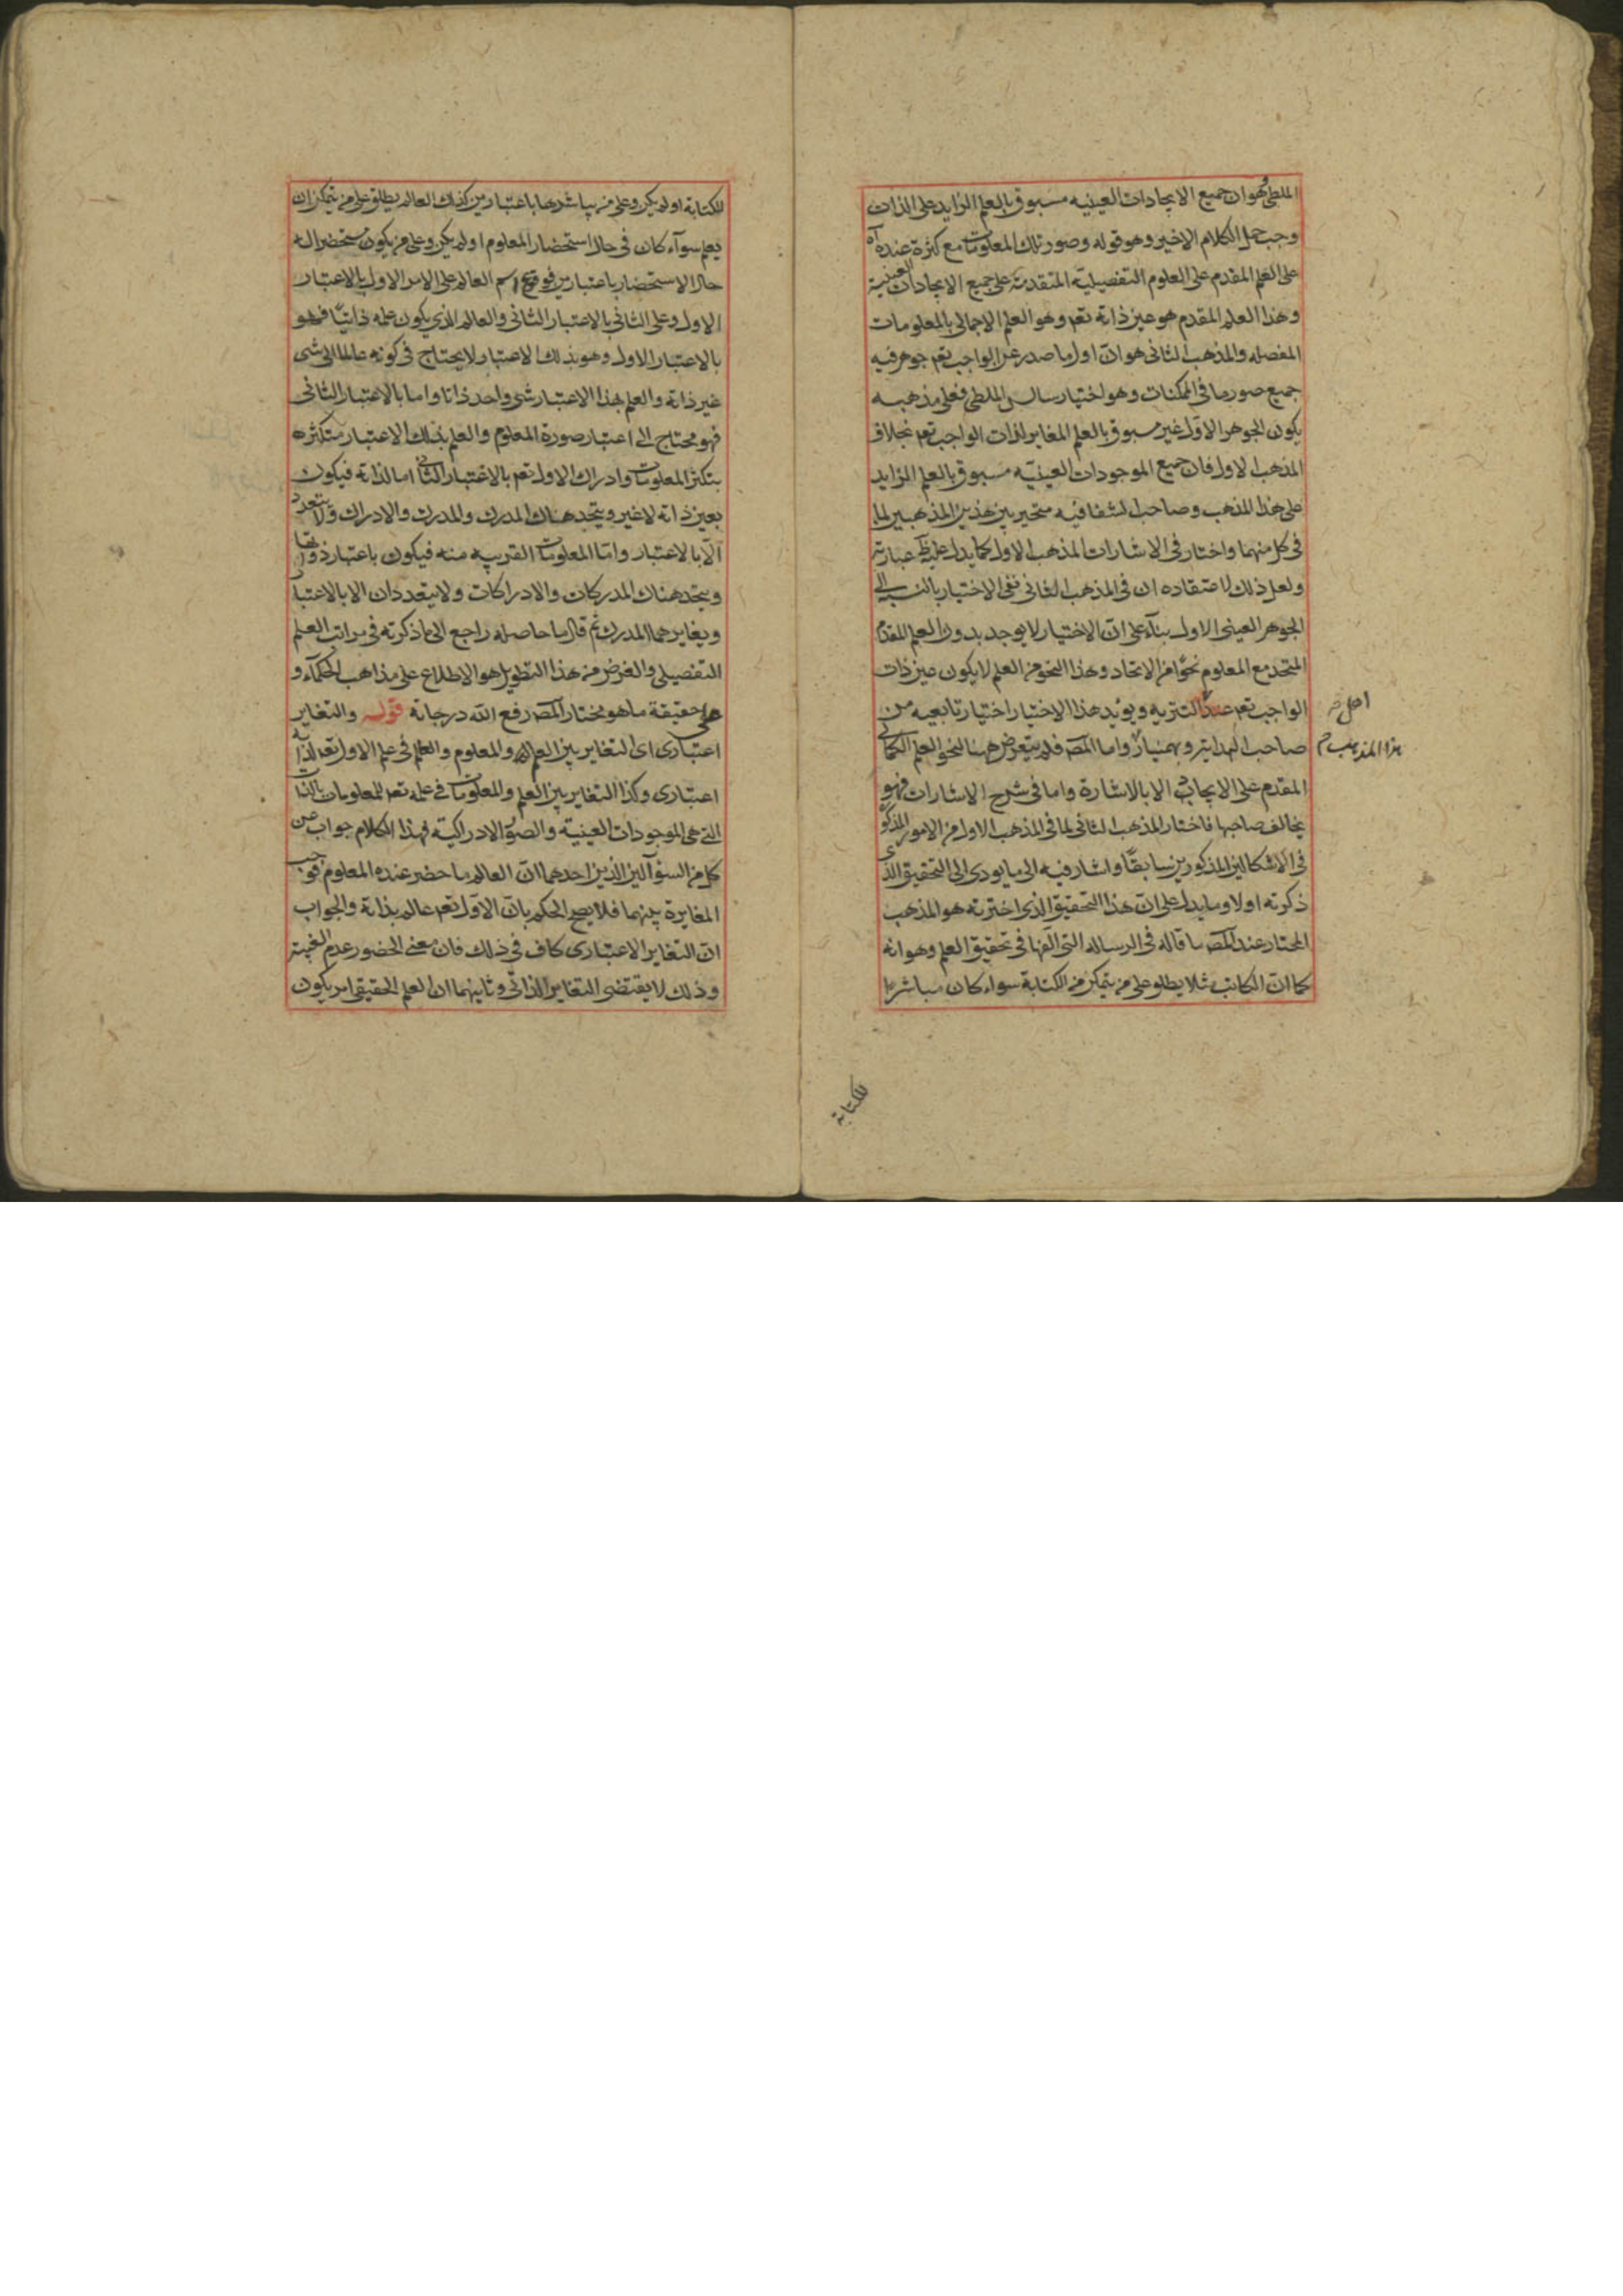 الملطی فهو ان جميع الايجادات العينيه مسبوق بالعلم الزايد على الذات
وجب حمل الكلام الاخير وهو قوله وصور تلك المعلومات مع كثرة عنده آه
على العلم المقدم على العلوم التفصيلية المتقدمة على جميع الايجادات العينية
وهذا العلم المقدم هو عين ذاته تعم وهو العلم الاجمالى بالمعلومات
المفصله والمذهب الثانى هو ان اول ما صدر عن الواجب تعم جوهر فيه
جميع صور ما فى الممكنات وهو اختيار سالس الملطى فعلى مذهبه
يكون الجوهر الاول غير مسبوق بالعلم المغاير لذات الواجب تعم بخلاف
المذهب الاول فان جميع الموجودات العينيّه مسبوق بالعلم الزايد
على هذا المذهب وصاحب الشفا فيه متحير بين هذين المذهبين لما
فى كل منهما واختار فى الاشارات المذهب الاول كما يدل عليه ظ عبارته
ولعل ذلك لاعتقاده ان فى المذهب الثانى نفى الاختيار بالنسبه الى
الجوهر العينى الاول بناء على ان الاختيار لا يوجد بدون العلم المقدم
المتحد مع المعلوم نحوا من الاتحاد وهذا النحو من العلم لا يكون عين ذات
الواجب تعم عند اكثريه ويؤيد هذا الاختيار اختيار تابعيه من
اهل
صاحب الهداية وبهمنيار واما المص فلم يتعرض ههنا لنحو العلم الكمالى
هذا المذهب م
المقدم على الايجاب الا بالاشارة واما فى شرح الاشارات فهو
يخالف صاحبها فاختار المذهب الثانى لما فى المذهب الاول من الامور المذكو
فى الاشكالين المذكورين سابقا واشار فيه الى ما يودى الى التحقيق الذى
ذكرته اولا ومما يدل على ان هذا التحقيق الذى اخترته هو المذهب
المختار عند المص ما قاله فى الرساله التى الفها فى تحقيق العلم وهو انه
كما ان الكاتب مثلا يطلق على من يتمكن من الكتابة سواء كان مباشرا
للكتابة
للكتابة او لم يكن وعلى من يباشرها باعتبارين كذلك العالم يطلق على من يتمكن ان
يعلم سوآء كان فى حال استحضار المعلوم او لم يكن وعلى من يكون مستحضرا له
حال الاستحضار باعتبارين فوقوع اسم العالم على الامر الاول بالاعتبار
الاول وعلى الثانى بالاعتبار الثانى والعالم الذى يكون علمه ذاتيّا فهو
بالاعتبار الاول وهو بذلك الاعتبار لا يحتاج فى كونه عالما الى شى
غير ذاته والعلم بهذا الاعتبار شى واحد ذاتا واما بالاعتبار الثانى
فهو محتاج الى اعتبار صورة المعلوم والعلم بذلك الاعتبار متكثره
بتكثر المعلومات وادراك الاول تعم بالاعتبار الثانى اما لذاته فيكون
بعين ذاته لا غير ويتحد هناك المدرك والمدرك والادراك ولا يتعدد
الّا بالاعتبار وامّا المعلومات القريبه منه فيكون باعتبار ذواتها
ويتحد هناك المدركات والادراكات ولا يتعددان الا بالاعتبار
ويغايرهما المدرك ثم قال ما حاصله راجع الى ما ذكرته فى مراتب العلم
التفصيلى والغرض من هذا التطويل هو الاطلاع على مذاهب الحكمآء و
على حقيقة ما هو مختار المص رفع الله درجاته قوله والتغاير
اعتبارى اى التغاير بين العالم والمعلوم والعلم فى علم الاول تعم لذاته
اعتبارى وكذا التغاير بين العلم والمعلومات فى علمه تعم للمعلومات بالذات
التى هى الموجودات العينية والصور الادراكية فهذا الكلام جواب عن
كل من السئوآلين الذين احدهما ان العالم ما حضر عنده المعلوم فوجب
المغايرة بينهما فلا يصح الحكم بان الاول تعم عالم بذاته والجواب
ان التغاير الاعتبارى كاف فى ذلك فان معنى الحضور عدم الغيبة
وذلك لا يقتضى التغاير الذاتى وثانيهما ان العلم الحقيقى امر يكون